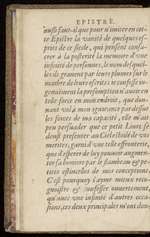 EPISTRE.
aussi faut-il que pour n'inserer en cet-
te Epistre la vanité de quelques es-
prits de ce siecle, qui pensent consa-
crer à la posterité la memoire d'une
infinité de personnes, le nom desquel-
les ils gravent par leurs plumes sur le
marbre de leurs escrits
la presomption n'aura en
telle force en mon endroit, que don-
nant vol à mon ignorance par dessus
les forces de ma capacité, elle m'ait
peu persuader que ce petit Livre se
deust presenter au Ciel solide de vos
merites, garni d'une telle
que d'esperer de luy pouvoir augmen-
ter sa lumiere par le flambeau & pe-
tites estincelles de mes conceptions.
C'est pourquoy j'ayme mieux reco-
gnoistre & confesser ouvertement,
qu'avec une infinité d'autres occa-
sions, ces deux principales m'ont don-